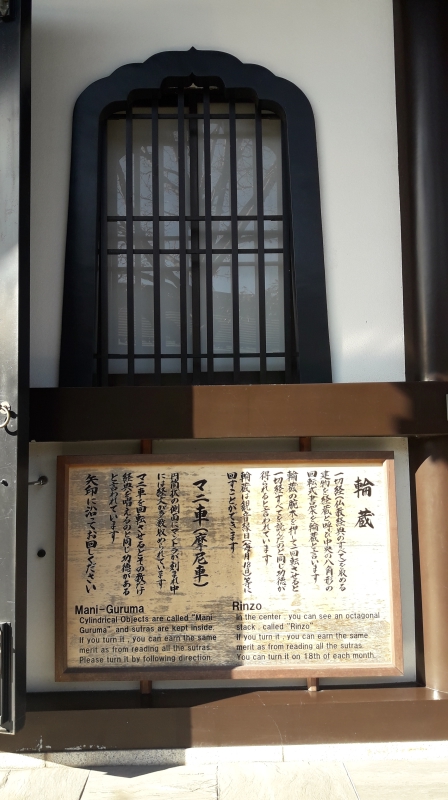 輪蔵
一切経(仏教経典のすべて)を収める
建物を経蔵と呼び中央の八角形の
回転式書架を輪蔵と言います
輪蔵の腕木を押して回転させると
一切経すべてを読んだのと同じ功徳が
得られると言われています
輪蔵は観音縁日(毎月18日)等に
回すことができます
マニ車(摩尼車)
円筒状の側面にマニ
には経文が
マニ車を回転させるとその数だけ
経典を唱えるのと同じ功徳がある
と言われています
矢印に沿ってお回しください
Mani-Guruma
Cylindrical Objects are called "Mani
Guruma" and sutras are kept inside.
If you turn it , you can earn the same
merit as from reading all the sutras.
Please turn it by following direction.
Rinzo
In the center , you can see an octagonal
stack , called "Rinzo"
If you turn it , you can earn the same
merit as from reading all the sutras.
You can turn it on 18th of each month.